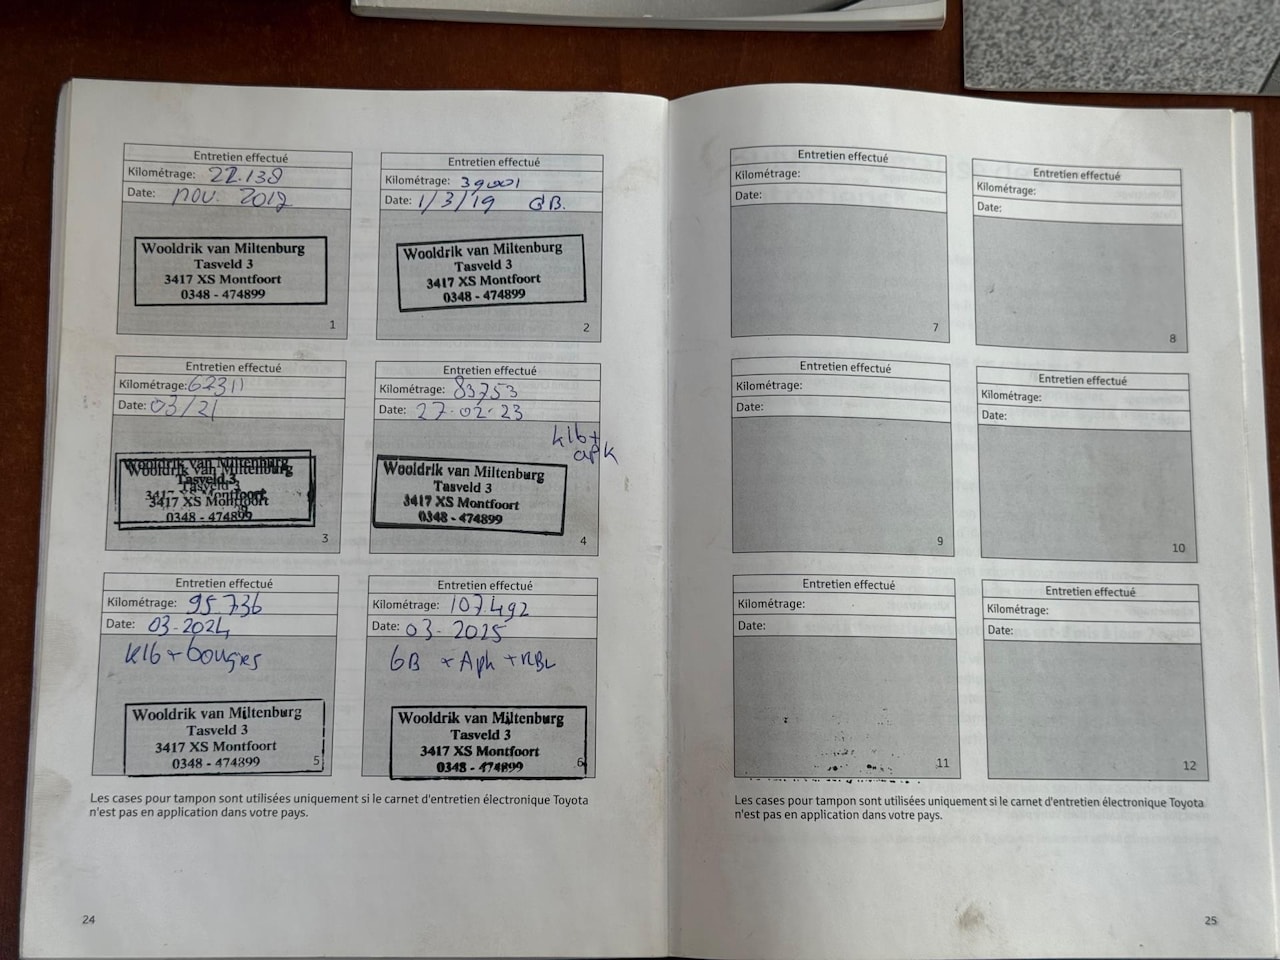 Entretien effectué
Kilométrage: 22.138
Date: nov. 2017
Wooldrik van Miltenburg
Tasveld 3
3417 XS Montfoort
0348 - 474899
1
Entretien effectué
Kilométrage: 39001
Date: 1/3/19 GB.
Wooldrik van Miltenburg
Tasveld 3
3417 XS Montfoort
0348 - 474899
2
Entretien effectué
Kilométrage: 62311
Date: 03/21
Wooldrik van Miltenburg
Tasveld 3
3417 XS Montfoort
0348 - 474899
3
Entretien effectué
Kilométrage: 83753
Date: 27-02-23
klb +
apk
Wooldrik van Miltenburg
Tasveld 3
3417 XS Montfoort
0348 - 474899
4
Entretien effectué
Kilométrage: 95736
Date: 03-2024
klb + bougies
Wooldrik van Miltenburg
Tasveld 3
3417 XS Montfoort
0348 - 474899
5
Entretien effectué
Kilométrage: 107492
Date: 03-2025
GB + Apk +
Wooldrik van Miltenburg
Tasveld 3
3417 XS Montfoort
0348 - 474899
6
Les cases pour tampon sont utilisées uniquement si le carnet d'entretien électronique Toyota
n'est pas en application dans votre pays.
24
Entretien effectué
Kilométrage:
Date:
7
Entretien effectué
Kilométrage:
Date:
8
Entretien effectué
Kilométrage:
Date:
9
Entretien effectué
Kilométrage:
Date:
10
Entretien effectué
Kilométrage:
Date:
11
Entretien effectué
Kilométrage:
Date:
12
Les cases pour tampon sont utilisées uniquement si le carnet d'entretien électronique Toyota
n'est pas en application dans votre pays.
25